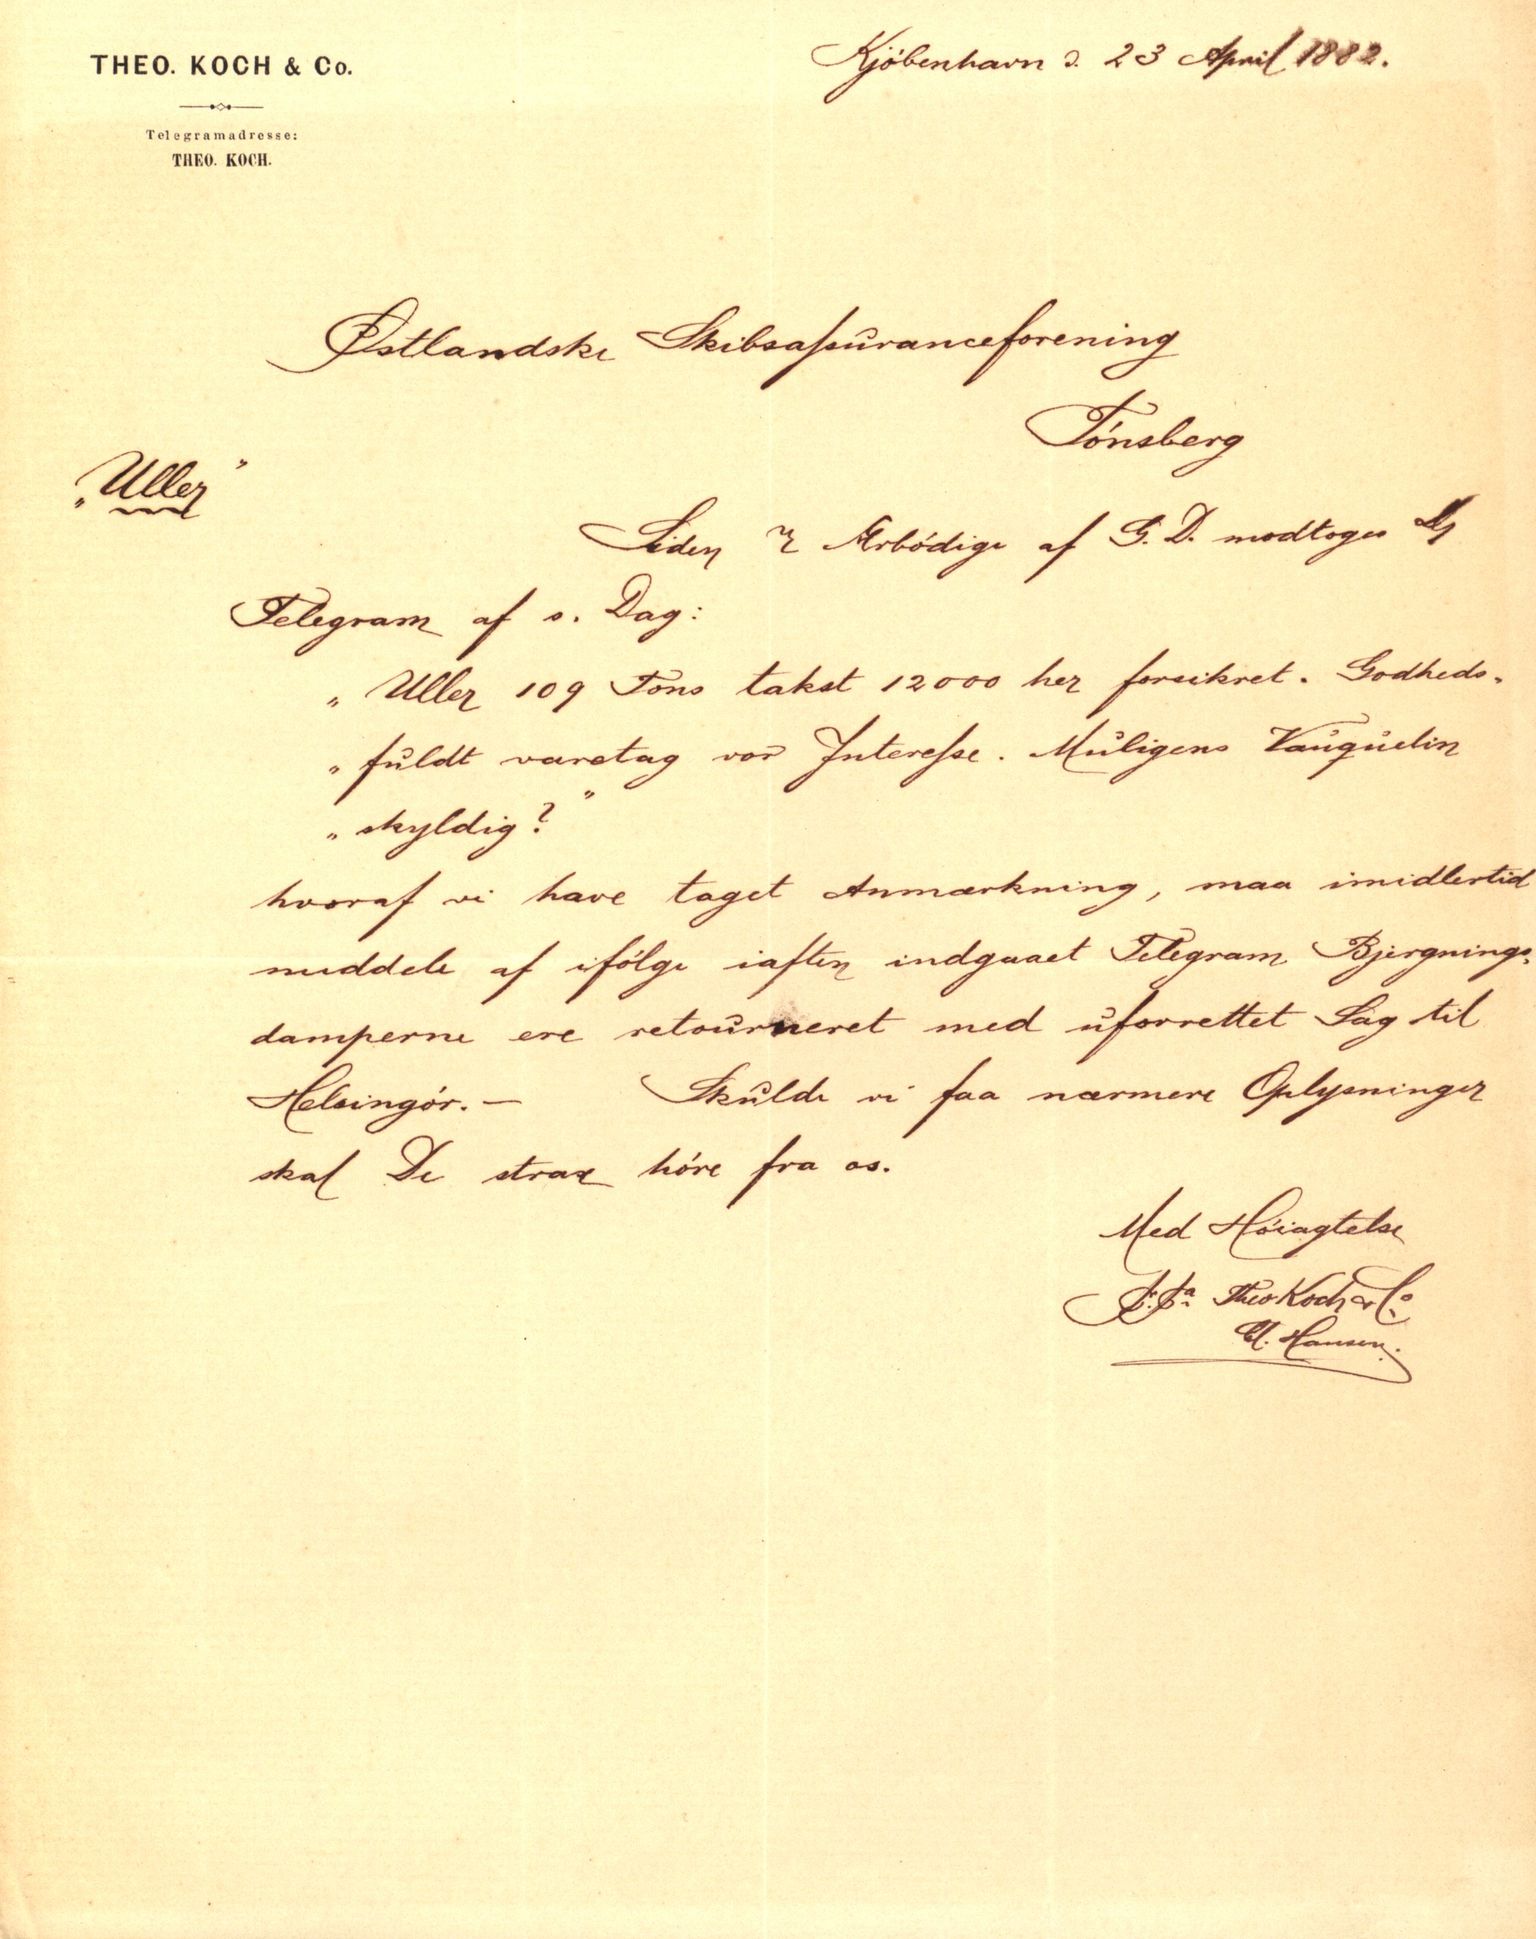 THEO. KOCH & Co.
Telegramadresse:
THEO. KOCH.
Kjöbenhavn d. 23 April 1882.
Østlandske Skibsassuranceforening
Tönsberg
"Uller"
Siden Ærbödige af G. D. modtoges
Telegram af s. Dag:
„ Uller 109 Tons takst 12000 her forsikret. Godheds-
„ fuldt varetag vor Interesse. Muligens Vauquelin
„ skyldig? "
hvoraf vi have taget Anmærkning, maa imidlertid
meddele af ifölge iaften indgaaet Telegram Bjergnings-
damperne ere retourneret med uforrettet Sag til
Helsingör. — Skulde vi faa nærmere Oplysninger
skal De strax höre fra os.
Med Höiagtelse
p. pa Theo Koch & Co
Hansen.